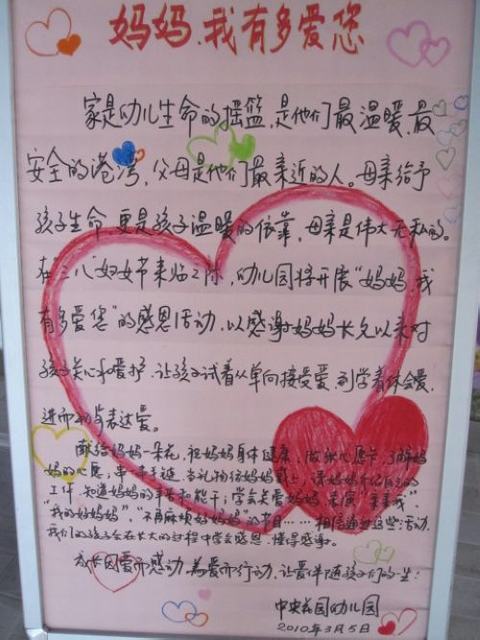 妈妈、我有多爱您
家是幼儿生命的摇篮,是他们最温暖、最
安全的港湾,父母是他们最亲近的人。母亲给予
孩子生命,更是孩子温暖的依靠,母亲是伟大无私的。
在三八"妇女节来临之际,幼儿园将开展"妈妈,我
有多爱您"的感恩活动,以感谢妈妈长久以来对
孩子关心和爱护,让孩子试着从单向接受爱,到学着体会爱,
进而参与表达爱。
献给妈妈一朵花,祝妈妈身体健康,做张心愿卡,了解妈
妈的心愿,串一串手链,当礼物给妈妈戴上,请妈妈介绍自己的
工作,知道妈妈的辛苦和能干;学会关爱妈妈,表演"亲亲我"
"我的好妈妈","不再麻烦好妈妈"的节目……相信通过这些活动,
我们的孩子会在长大的过程中学会感恩、懂得感谢。
成长因爱而感动,为爱而行动,让爱伴随孩子们的一生!
中央花园幼儿园
2010年3月5日